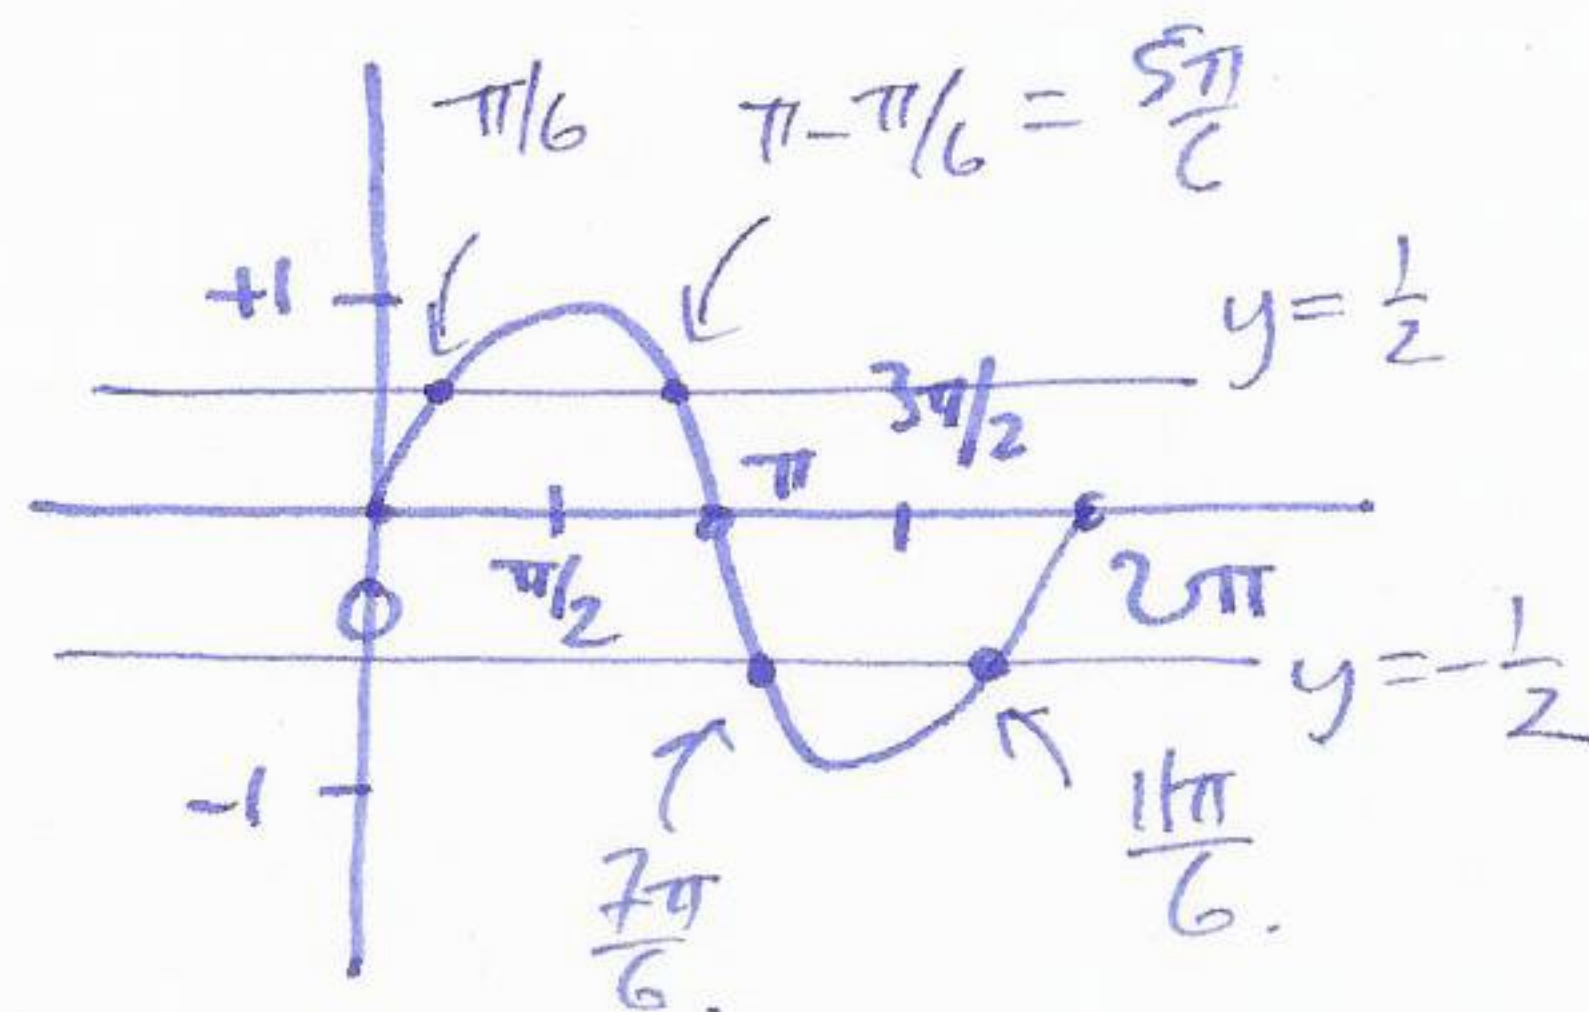 π/6
π-π/6 = 5π/6
+1
y= 1/2
3π/2
π
π/2
O
2π
y=-1/2
-1
11π/6.
7π/6.